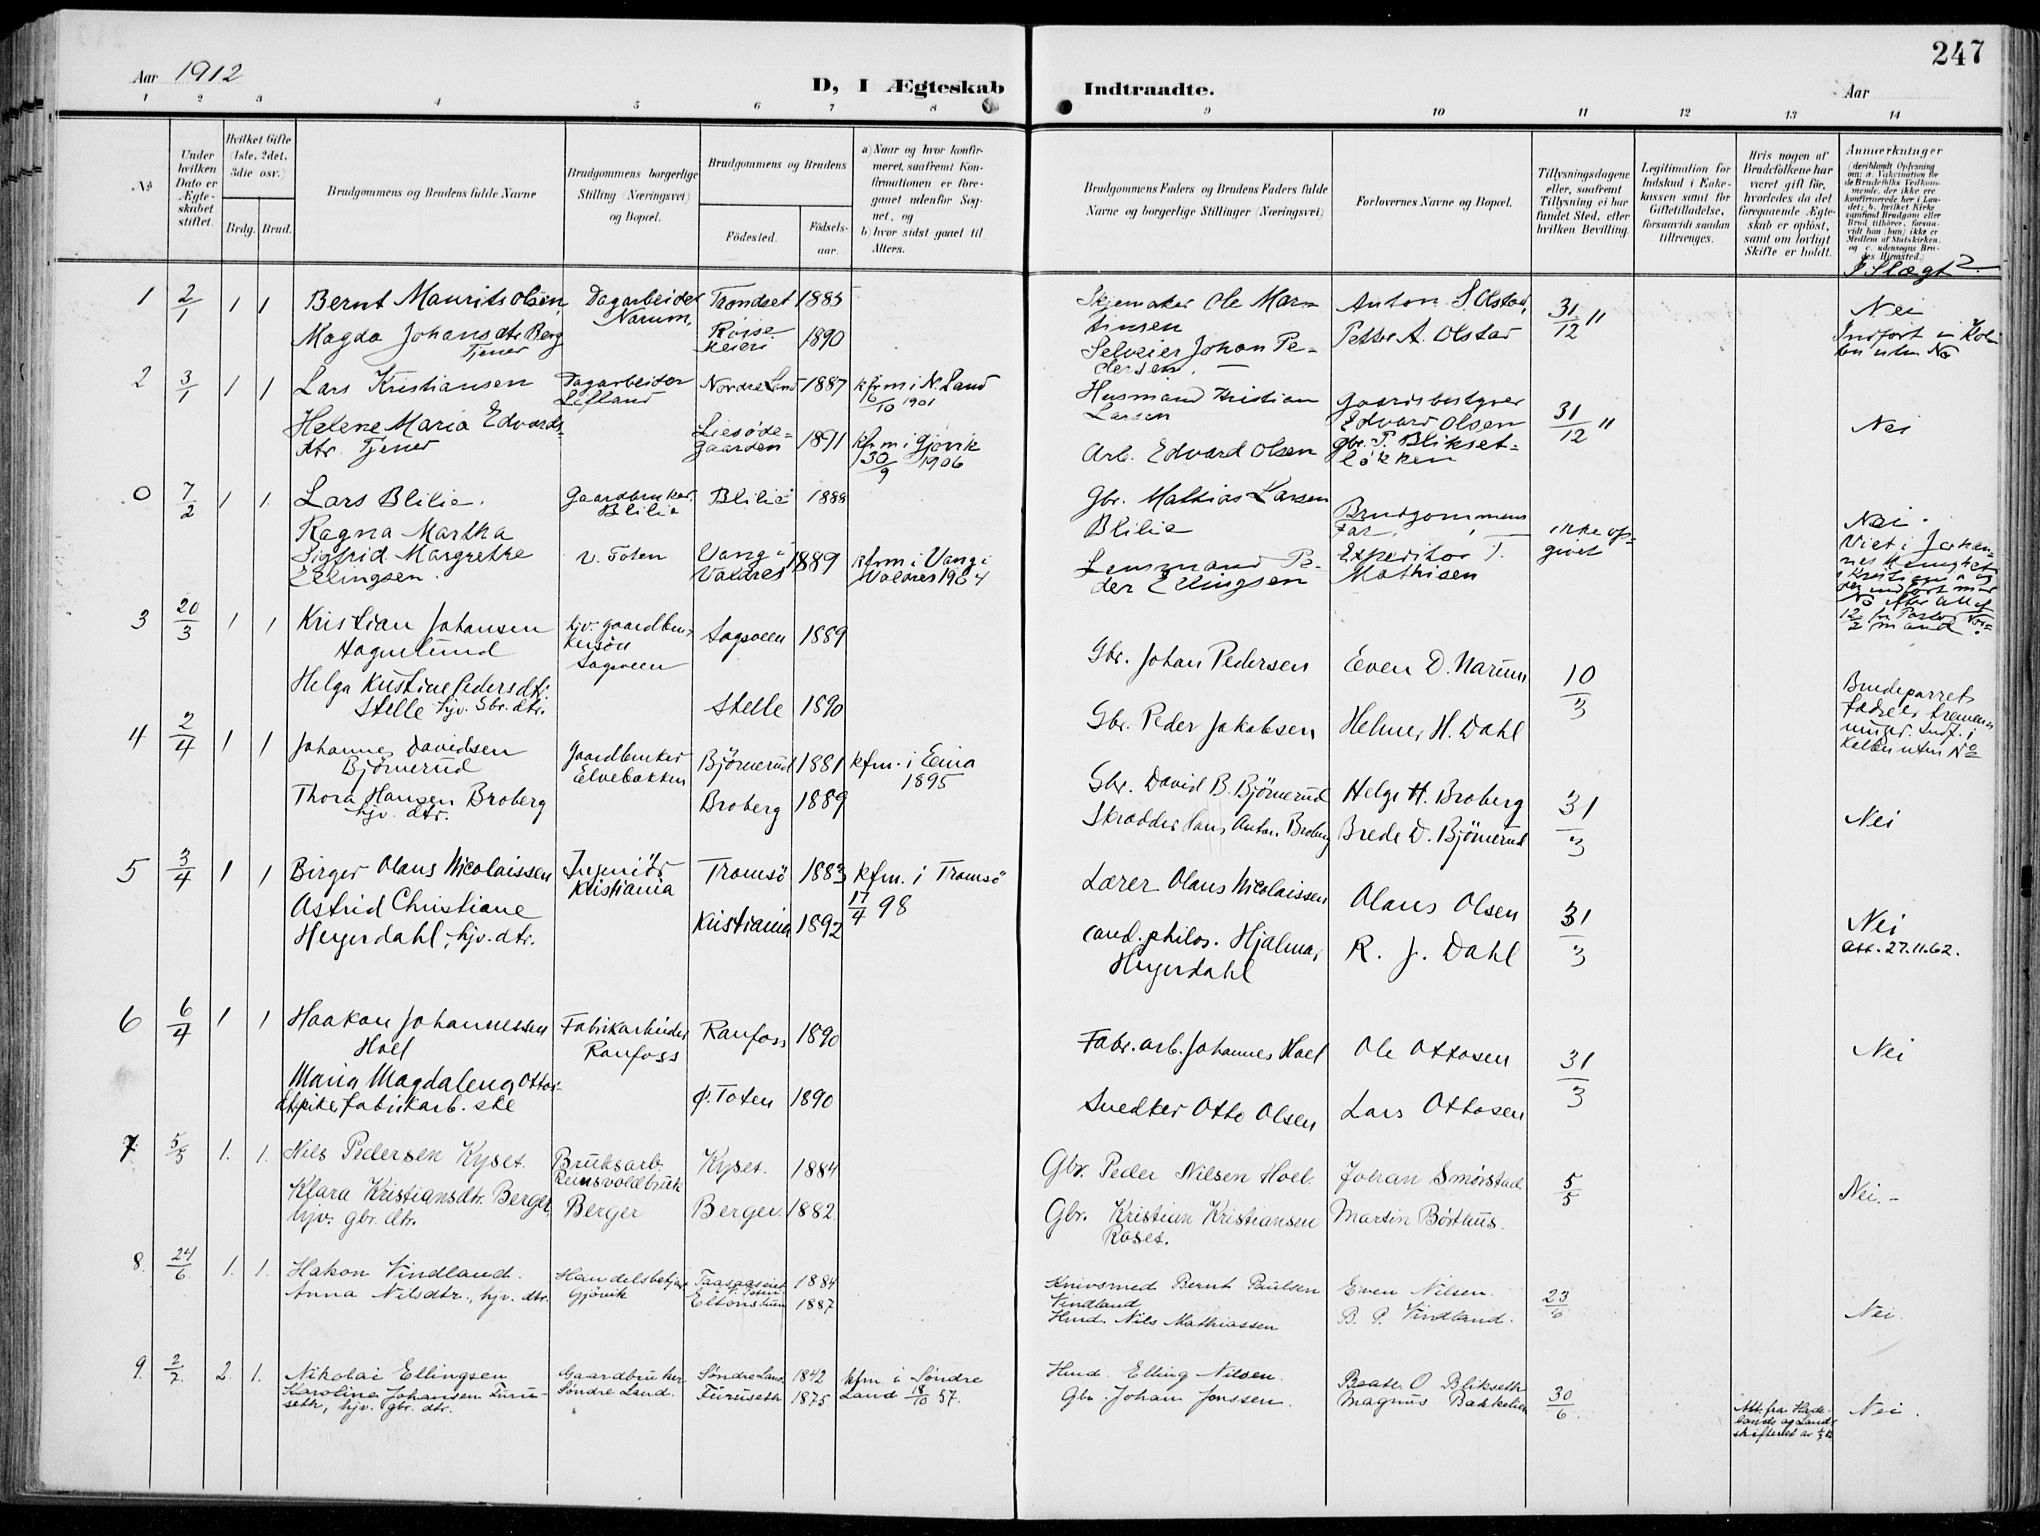 247
Aar 1912
D, I Ægteskab Indtraadte.
Aar
1 2 3 4 5 6 7 8 9 10 11 12 13 14
No
Under hvilken Dato er Ægteskabet stiftet.
Hvilket Gifte (1ste, 2det, 3die osv.)
Brdg. Brud.
Brudgommens og Brudens fulde Navne
Brudgommens borgerlige Stilling (Næringsvei) og Bopæl.
Brudgommens og Brudens
Fødested.
Fødselsaar.
a) Naar og hvor konfirmeret, saafremt Konfirmationen er foregaaet udenfor Sognet, og
b) hvor sidst gaaet til Alters.
Brudgommens Faders og Brudens Faders fulde Navne og borgerlige Stillinger (Næringsvei)
Forlovernes Navne og Bopæl.
Tillysningsdagene eller, saafremt Tillysning ei har fundet Sted, efter hvilken Bevilling.
Legitimation for Indskud i Enkekassen samt for Giftetilladelse, forsaavidt saadan tiltrænges.
Hvis nogen af Brudefolkene har været gift før, hvorledes da det foregaaende Ægteskab er opløst, samt om lovligt Skifte er holdt.
Anmærkninger
(deriblandt Oplysning om: a. Vakcination for de Brudefolks Vedkommende, der ikke ere konfirmerede her i Landet; b. hvilket Kirkesamfund Brudgom eller Brud tilhører, forsaavidt han (hun) ikke er Medlem af Statskirken, og c. udensogns Brudes Hjemsted.)
I Slægt?
1 2/1 1 1 Bernt Maurits Olsen, Dagarbeider Trondset 1885 Skjemaker Ole Martinsen Anton S. Olstad, 31/12 " Nei
Narum,
Magda Johansdtr. Berg Røise 1890 Selveier Johan Pedersen. Petter A. Olstad
Tjener
2 3/1 1 1 Lars Kristiansen Dagarbeider Nordre Land 1887 kfrm i N. Land 16/10 1901 Husmand Kristian Larsen Gaardsbestyrer Edvard Olsen 31/12 " Nei
Helene Maria Edvardsdtr. Tjener 1891 kfrm i Gjøvik 30/9 1906 Arb. Edvard Olsen gbr. P. Blikset-
løkken
0 7/2 1 1. Lars Blilie. Gaardbruker Blilie Blilie 1888 Gbr. Mathias Larsen Blilie Brudgommens Far, ikke opgivet Nei.
Ragna Martha Sigfrid Margrethe Ellingsen. V. Toten Vang i Valdres 1889 kfrm i Vang i Valdres 1904 Lensmand Peder Ellingsen Expeditør T. Mathisen
3 20/3 1 1 Kristian Johansen Hagerlund hjv. gaardbrukersøn Sagveen Sagveen 1889 Gbr. Johan Pedersen Even D. Narum 10/3
Helga Kristine Pedersdtr. Stelle hjv. Gbr. dtr. Stelle 1890 Gbr. Peder Jakobsen Helmer H. Dahl
4 2/4 1 1 Johannes Davidsen Bjørnerud Gaardbruker Elvebakken Bjørnerud 1881 kfm. i Eina 1895 Gbr. David B. Bjørnerud Helge H. Broberg 31/3 Nei
Thora Hansen Broberg hjv. dtr. Broberg 1889 Skrædder Hans Anton Broberg Brede D. Bjørnerud
5 3/4 1 1 Birger Olaus Nicolaissen Ingeniør Kristiania Tromsø 1883 kfm. i Tromsø 17/4 98 Lærer Olaus Nicolaissen Olaus Olsen 31/3 Nei
Astrid Christiane Heyerdahl, hjv. dtr. Kristiania 1892 cand. philos. Hjalmar Heyerdahl R. J. Dahl
att. 27.11.62.
6 6/4 1 1 Haakon Johannessen Hoel Fabrikarbeider Raufoss Raufoss 1890 Fabr. arb. Johannes Hoel Ole Ottosen 31/3 Nei
Maria Magdalena Fabrikarb.ske Ø. Toten 1890 Snedker Otto Olsen Lars Ottosen
7 5/5 1. 1. Nils Pedersen Kyset. Bruksarb. Reinsvoldbruk Kyset. 1884 Gbr. Peder Nilsen Hoel. Johan Smørstad. 5/5 Nei. -
Klara Kristiansdtr. Berger, hjv. gbr. dtr. Berger Berger. 1882. Gbr. Kristian Kristiansen Roset. Martin Børthus.
8. 24/6 1. 1. Hakon Vindland. Handelsbetjent Gjøvik 1884 Knivsmed Bernt Paulsen Vindland Even Nilsen. 23/6 Nei.
Anna Nilsdtr., hjv. dtr. Eltonstuen 1887 Hmd. Nils Mathiassen B. P. Vindland.
9. 2/7. 2. 1. Nikolai Ellingsen Gaardbruker Søndre Land. Søndre Land 1842 kfm. i Søndre Land 18/10 57. Hmd. Elling Nilsen. Beate O. Blikseth 30/6. Nei.
Karoline Johansen Furuseth, hjv. gbr. dtr. Furuseth 1875 Gbr. Johan Jonssen. Magnus Bakkelien
Att. fra Hadelands og Lands skifteret av